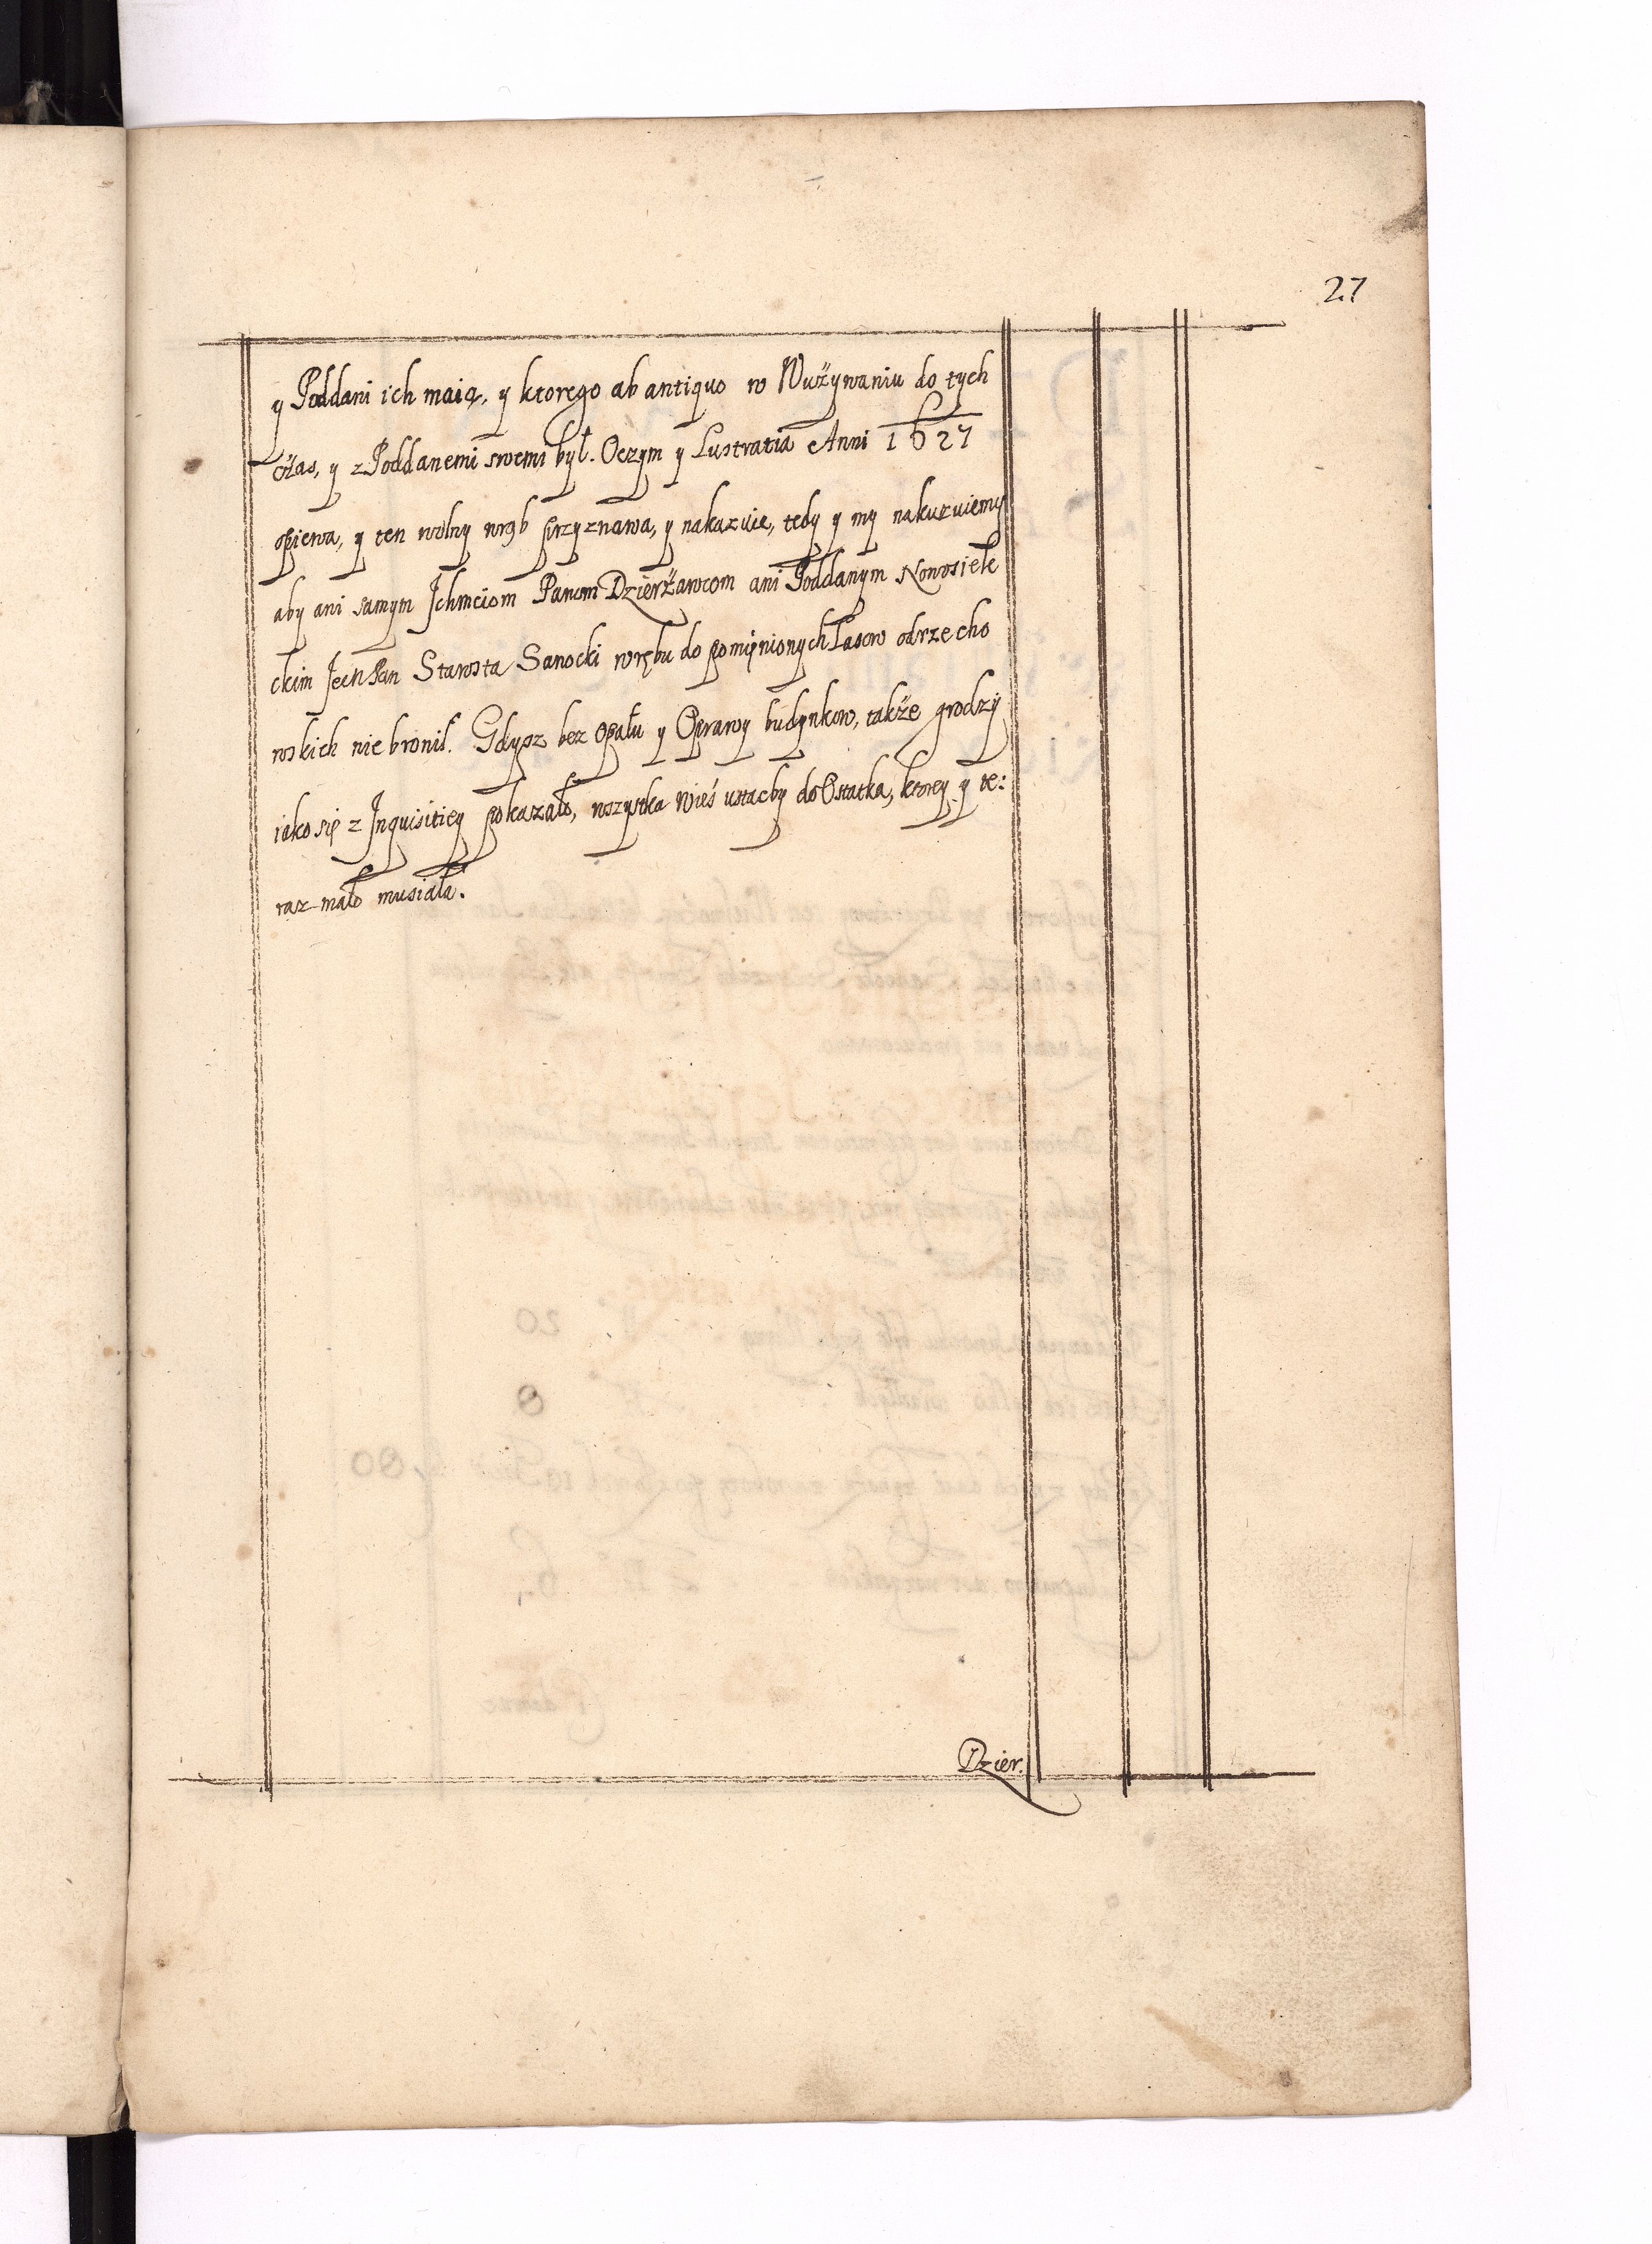 27
y Poddani ich maią, y ktorego ab antiquo w Wużywaniu do tych
cżas, y z Poddanemi swemi był. Oczym y Lustratia Anni 1627
opiewa, y ten wolny wrąb przyznawa, y nakazuie, tedy y my nakazuiemy
aby ani samym Ichmciom Panom Dzierżawcom ani Poddanym Nowosiele
ckim Jeᵒ Pan Starosta Sanocki wrębu do pomięnionych Lasow odrzecho
wskich nie bronił. Gdysz bez opału y Oprawy budynkow, także grodzy
iako się z Inquisitiey pokazało, wszystka Wieś ustacby do Ostatka, ktorey y te:
raz mało musiała.
Dzier.